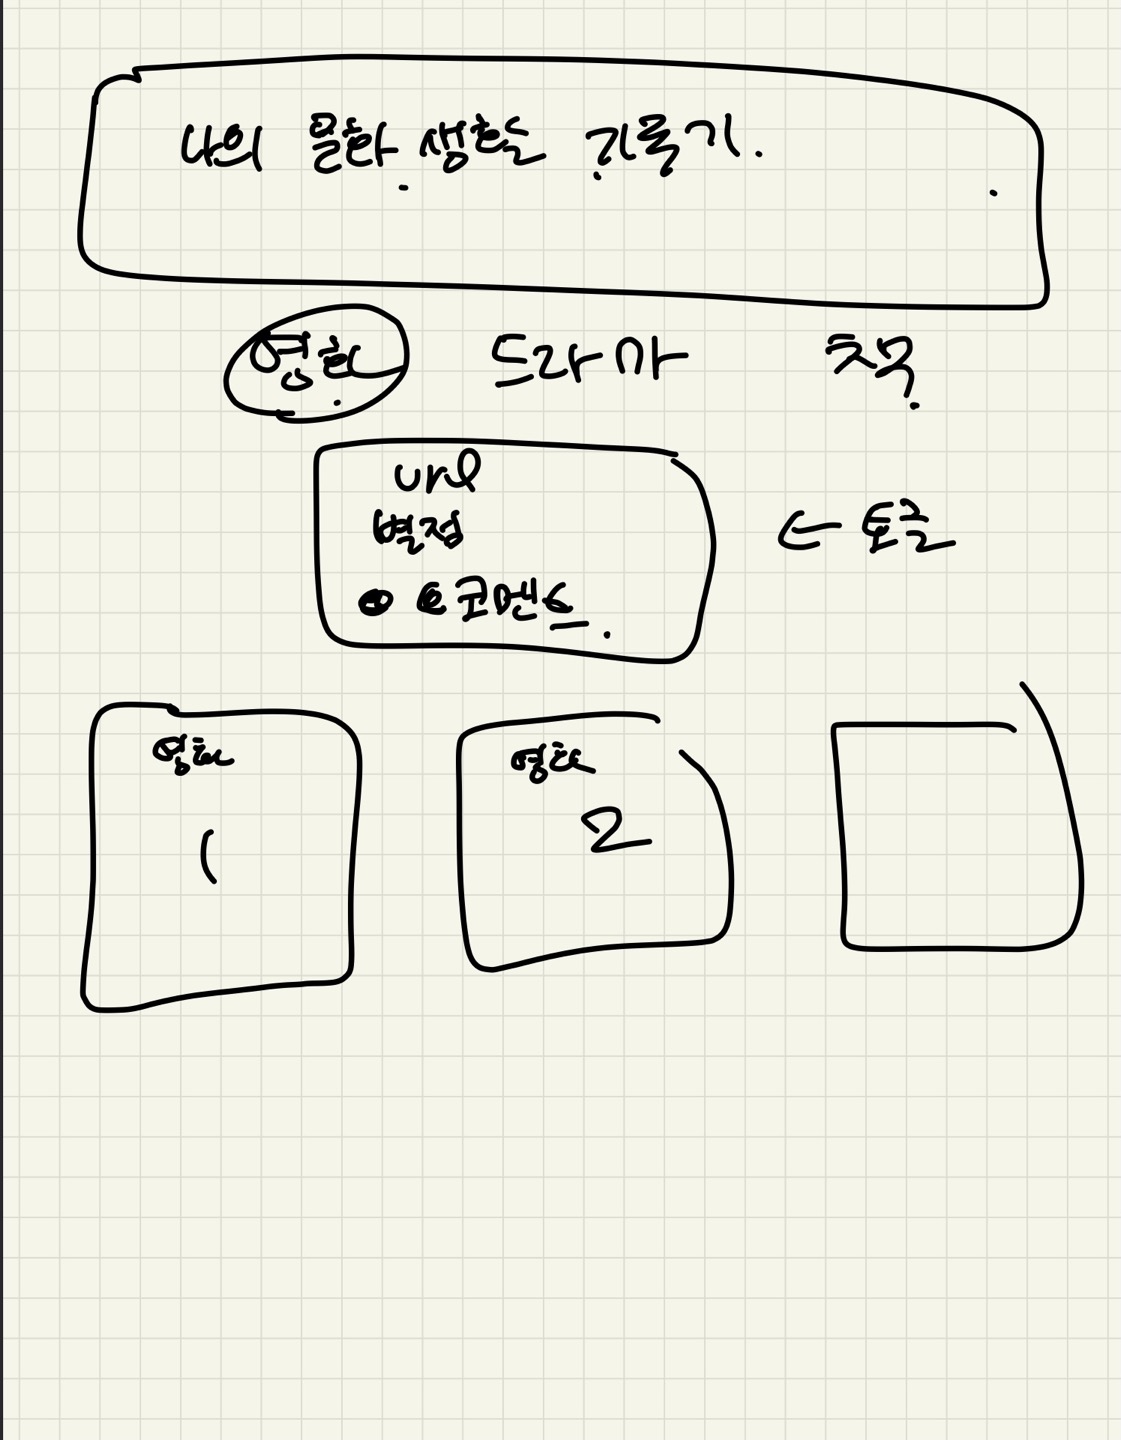 나의 문화 생활 기록기.
영화 드라마
url
별점
코멘트.
← 토글
영화 영화
1 2